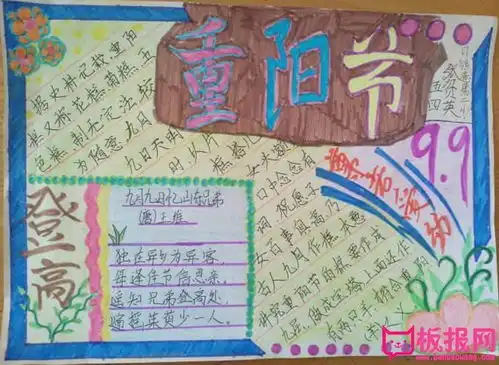 重阳节
据史料记载重阳
糕又称花糕菊糕五
色糕制无定法较
为随意九月
九日天明
时以片
糕搭儿
女头额
口中念念有
词祝愿子
女百事俱高乃
古人九月作糕本意
讲究重阳节的糕要作成
九层,做成宝塔上面还作
有两只羊,符合重阳
(羊)之义
五
四
9.9
登高
九月九日忆山东兄弟
(唐)王维
独在异乡为异客,
每逢佳节倍思亲。
遥知兄弟登高处,
遍插茱萸少一人。
板报网